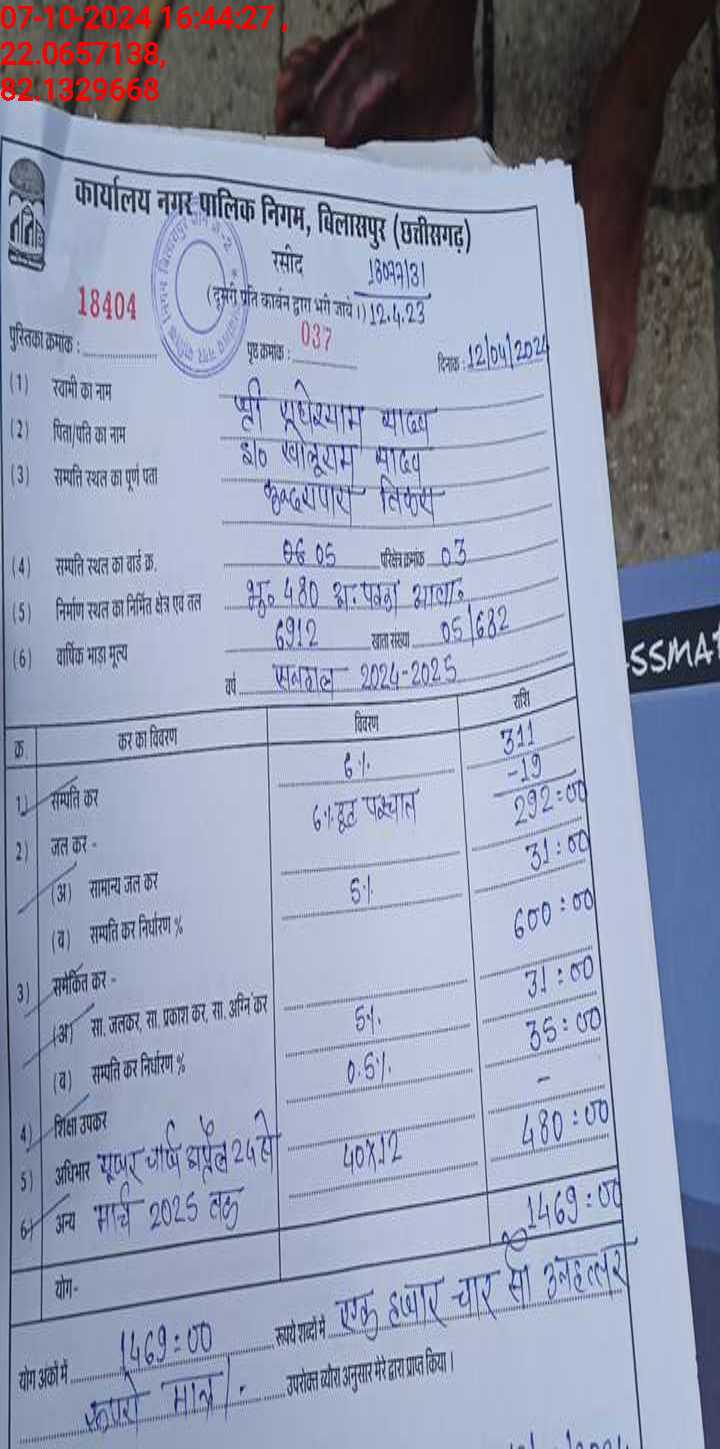 07-10-2024 16:44:27 ,
22.0657138,
82.1329668
कार्यालय नगर पालिक निगम, बिलासपुर (छत्तीसगढ़)
रसीद
(दूसरी प्रति कार्बन द्वारा भरी जाये।) 12.4.23
18404
037
पुस्तिका क्रमांक : पृष्ठ क्रमांक : दिनांक : 12/04/202
(1) स्वामी का नाम श्री राधेश्याम यादव
(2) पिता/पति का नाम S/o खोलूराम यादव
(3) सम्पति स्थल का पूर्ण पता तिफरा
(4) सम्पति स्थल का वार्ड क्र. 05 परिक्षेत्र क्रमांक 03
(5) निर्माण स्थल का निर्मित क्षेत्र एवं तल भू० 480 अ. पक्का आवा०
(6) वार्षिक भाड़ा मूल्य 6912 खाता संख्या 05/682
वर्ष 2024-2025
क्र. कर का विवरण विवरण राशि
6% 311
-19
1) सम्पति कर 6% छूट पश्चात 292=00
2) जल कर - 31=00
(अ) सामान्य जल कर 5%
(ब) सम्पति कर निर्धारण % 600=00
3) समेकित कर - 31=00
(अ) सा. जलकर, सा. प्रकाश कर, सा. अग्नि कर 5% 35=00
(ब) सम्पति कर निर्धारण % 0.5% -
4) शिक्षा उपकर 480=00
5) अधिभार यूजर चार्ज अप्रैल 24 से 40X12
6) अन्य मार्च 2025 तक 1469=00
योग-
योग अंकों में 1469=00 रूपये शब्दों में एक हजार चार सौ उनहत्तर
रूपये मात्र/- उपरोक्त व्यौरा अनुसार मेरे द्वारा प्राप्त किया।
SSMA